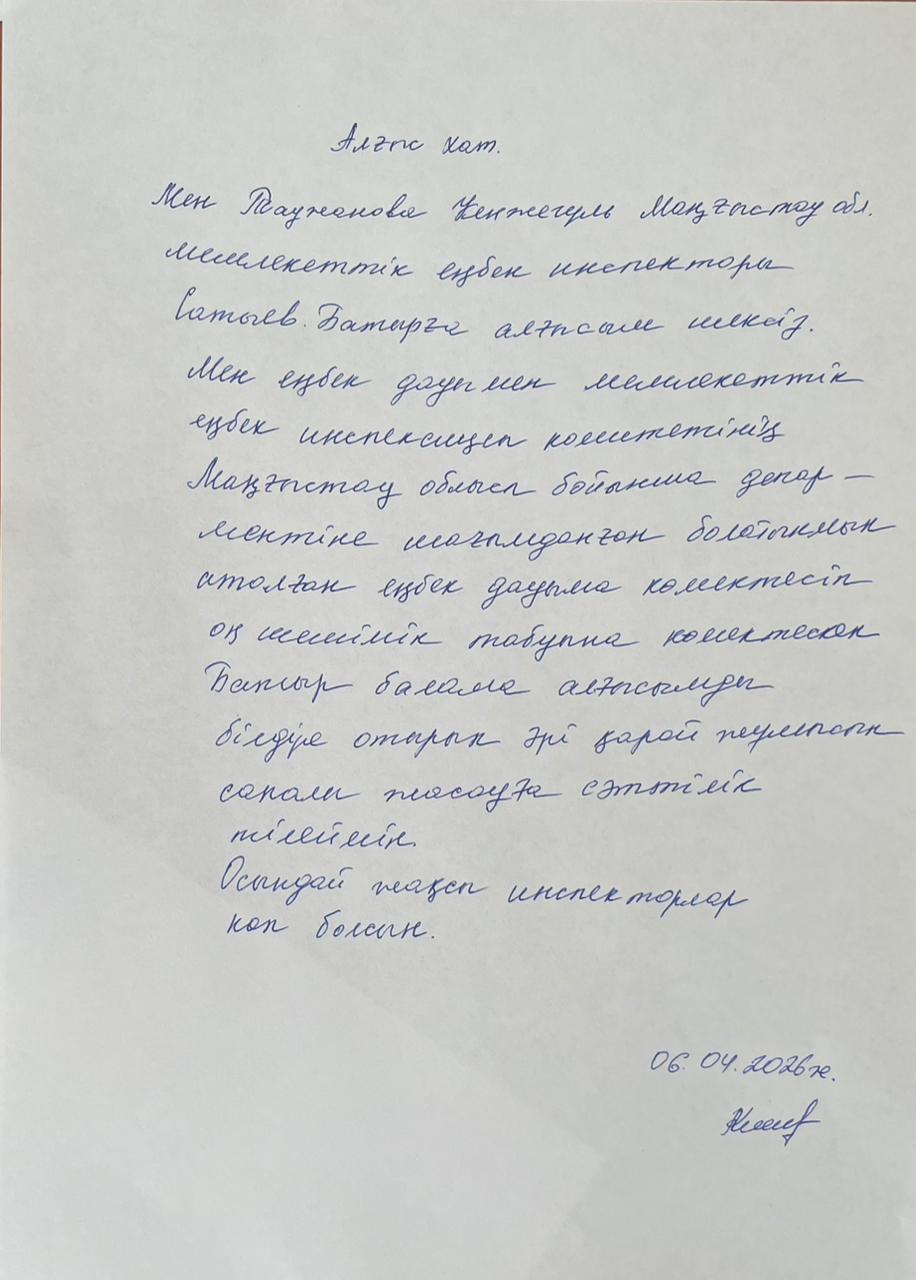 Алғыс хат.
Мен Таужанова Кенжегуль Маңғыстау обл.
мемлекеттік еңбек инспекторы
Сатыев. Батырға алғысым шексіз.
Мен еңбек дауымен мемлекеттік
еңбек инспексиясы комитетінің
Маңғыстау облысы бойынша депар-
ментіне шағымданған болатынмын
аталған еңбек дауыма көмектесіп
оң шешімін табуына көмектескен
Батыр балама алғысымды
білдіре отырып әрі қарай жұмысын
сапалы жасауға сәттілік
тілеймін.
Осындай жақсы инспекторлар
көп болсын.
06.04.2026ж.